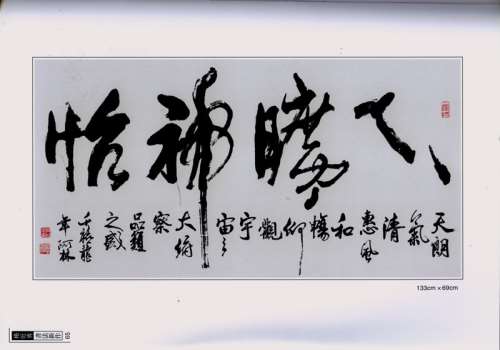 心曠神怡
天朗
氣
清
惠風
和
暢
仰
觀
宇
宙之
大俯
察
品類
之盛
壬辰龍
年阿林
133cm×69cm